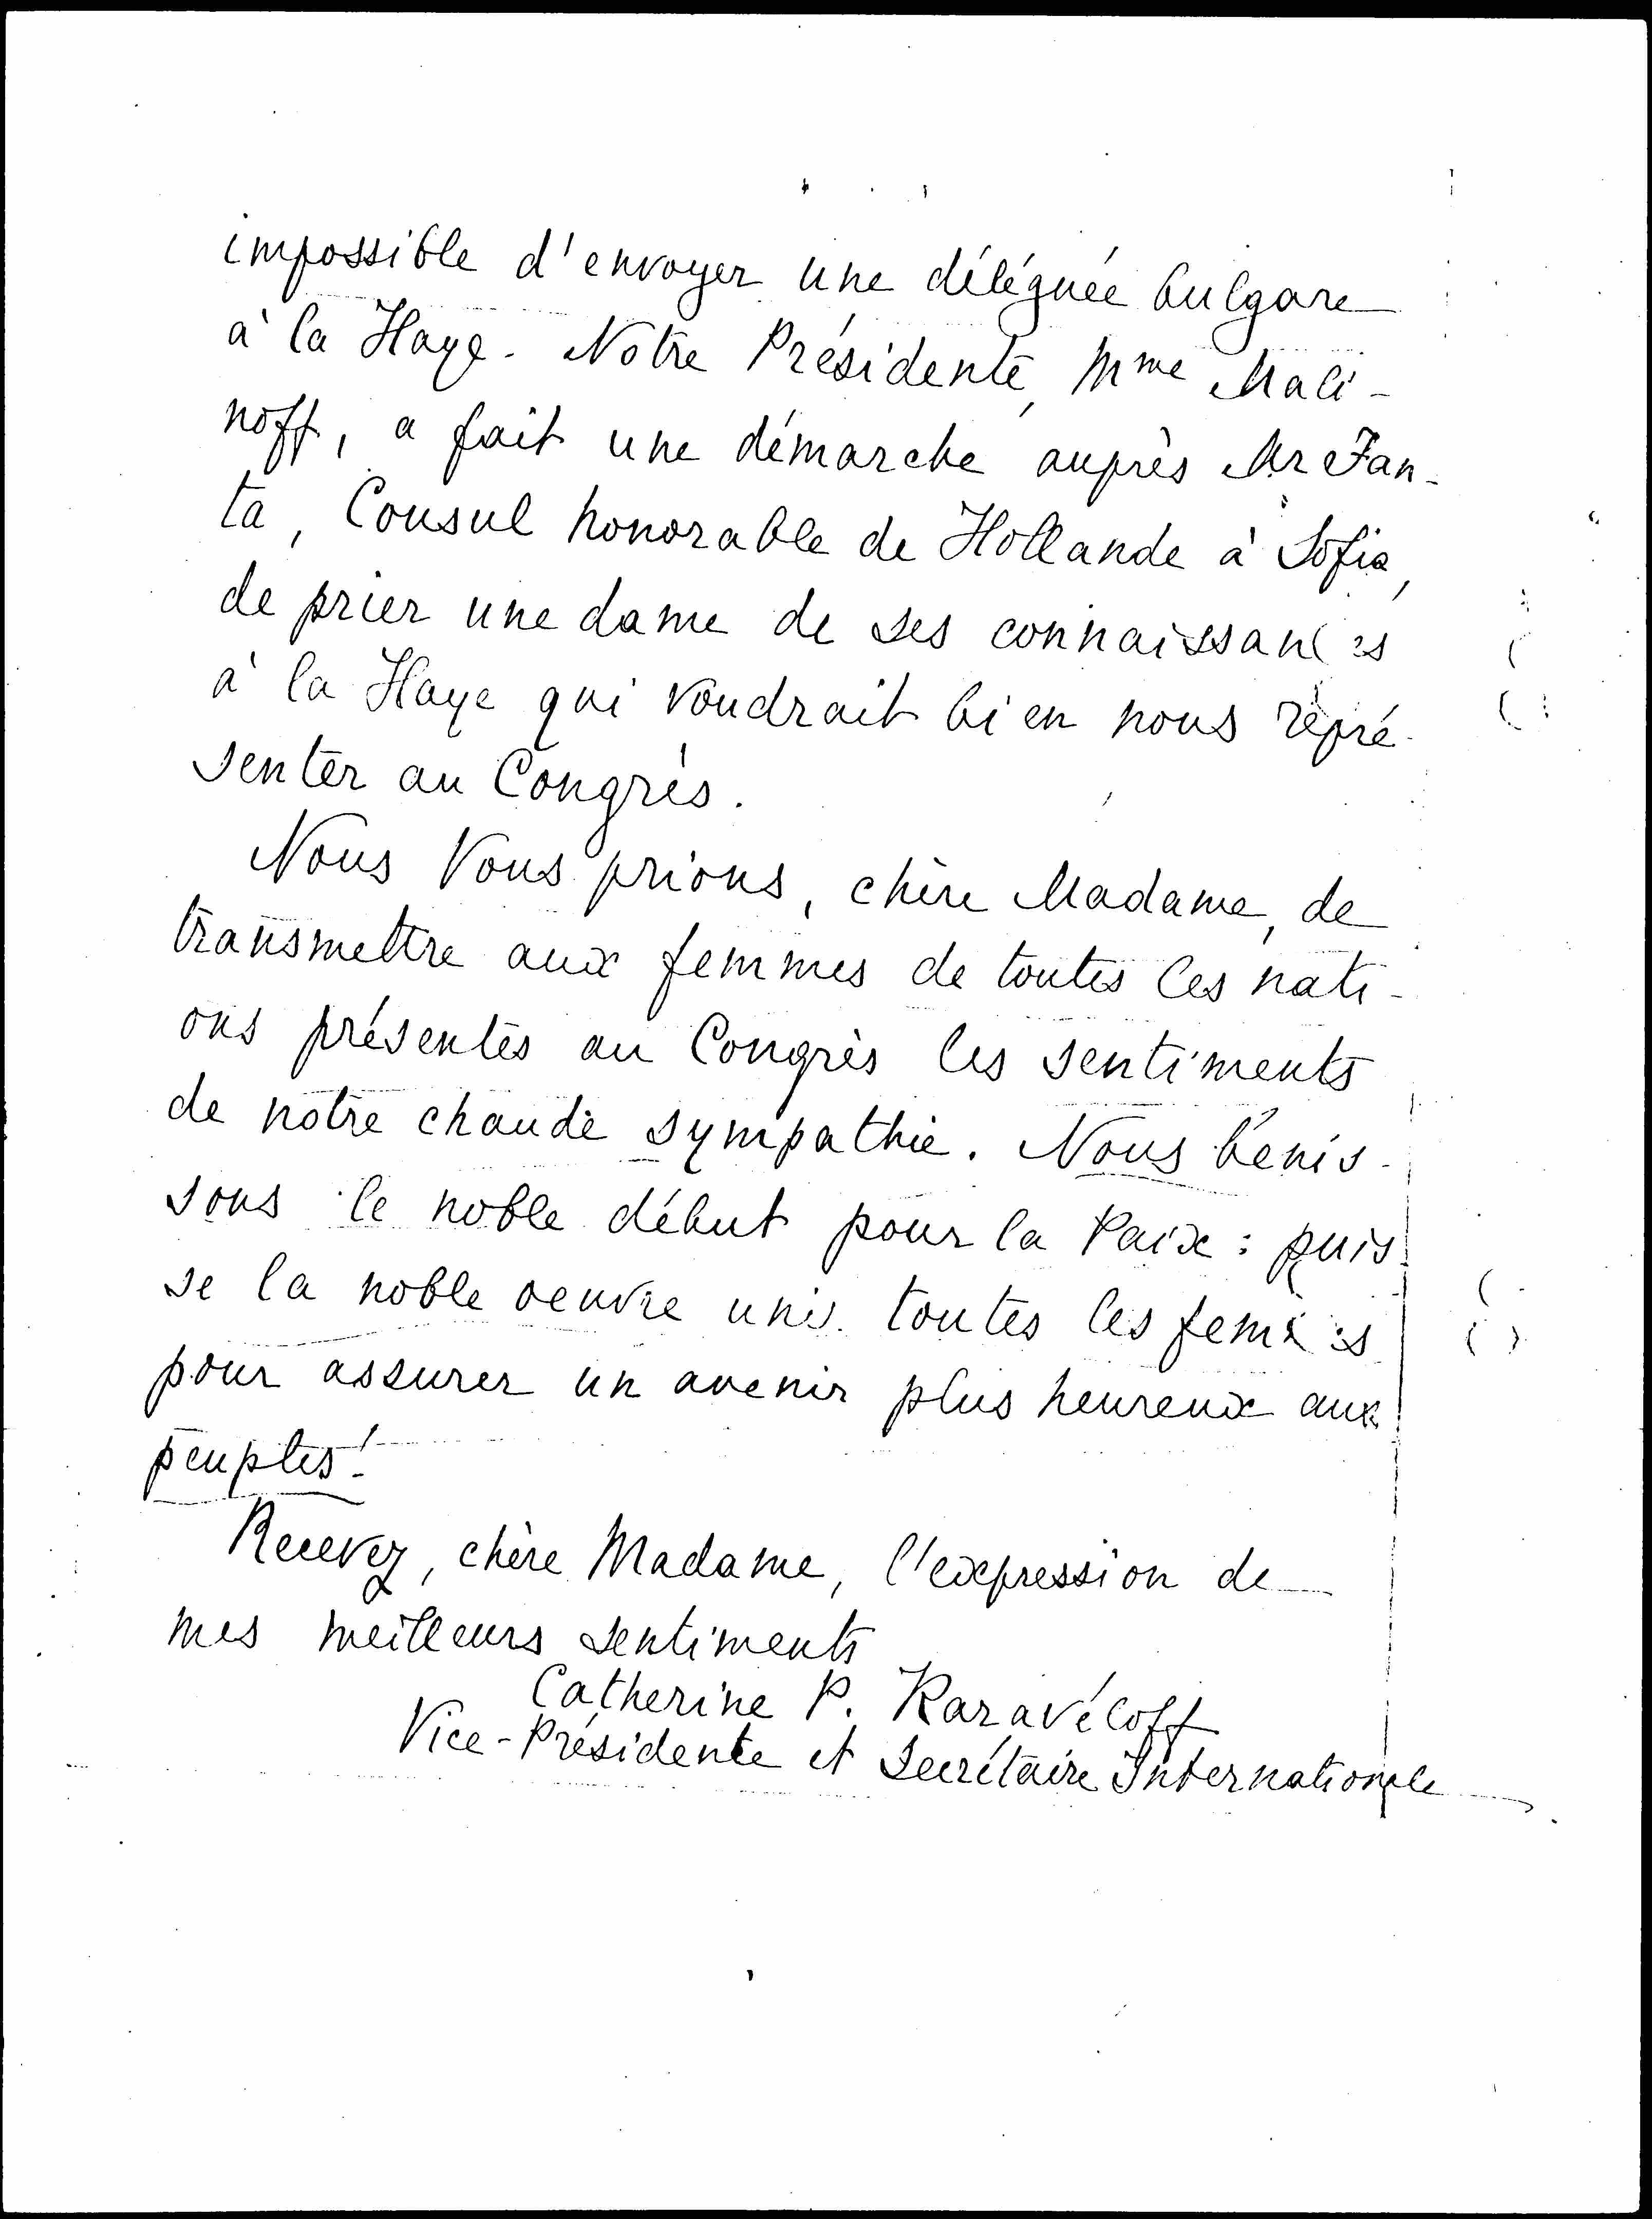 impossible d'envoyer une déléguée bulgare
à la Haye. Notre Présidente, Mme Mali-
noff, a fait une démarche auprès Mr Fan-
ta, Consul honorable de Hollande à Sofia,
de prier une dame de ses connaissances
à la Haye qui voudrait bien nous repré-
senter au Congrès.
Nous Vous prions, chère Madame, de
transmettre aux femmes de toutes les nati-
ons présentes au Congrès les sentiments
de notre chaude sympathie. Nous bénis-
sons le noble début pour la Paix : puis-
se la noble oeuvre unir toutes les femmes
pour assurer un avenir plus heureux aux
peuples!
Recevez, chère Madame, l'expression de
mes meilleurs sentiments
Catherine P. Karavéloff
Vice-Présidente et Secrétaire Internationale